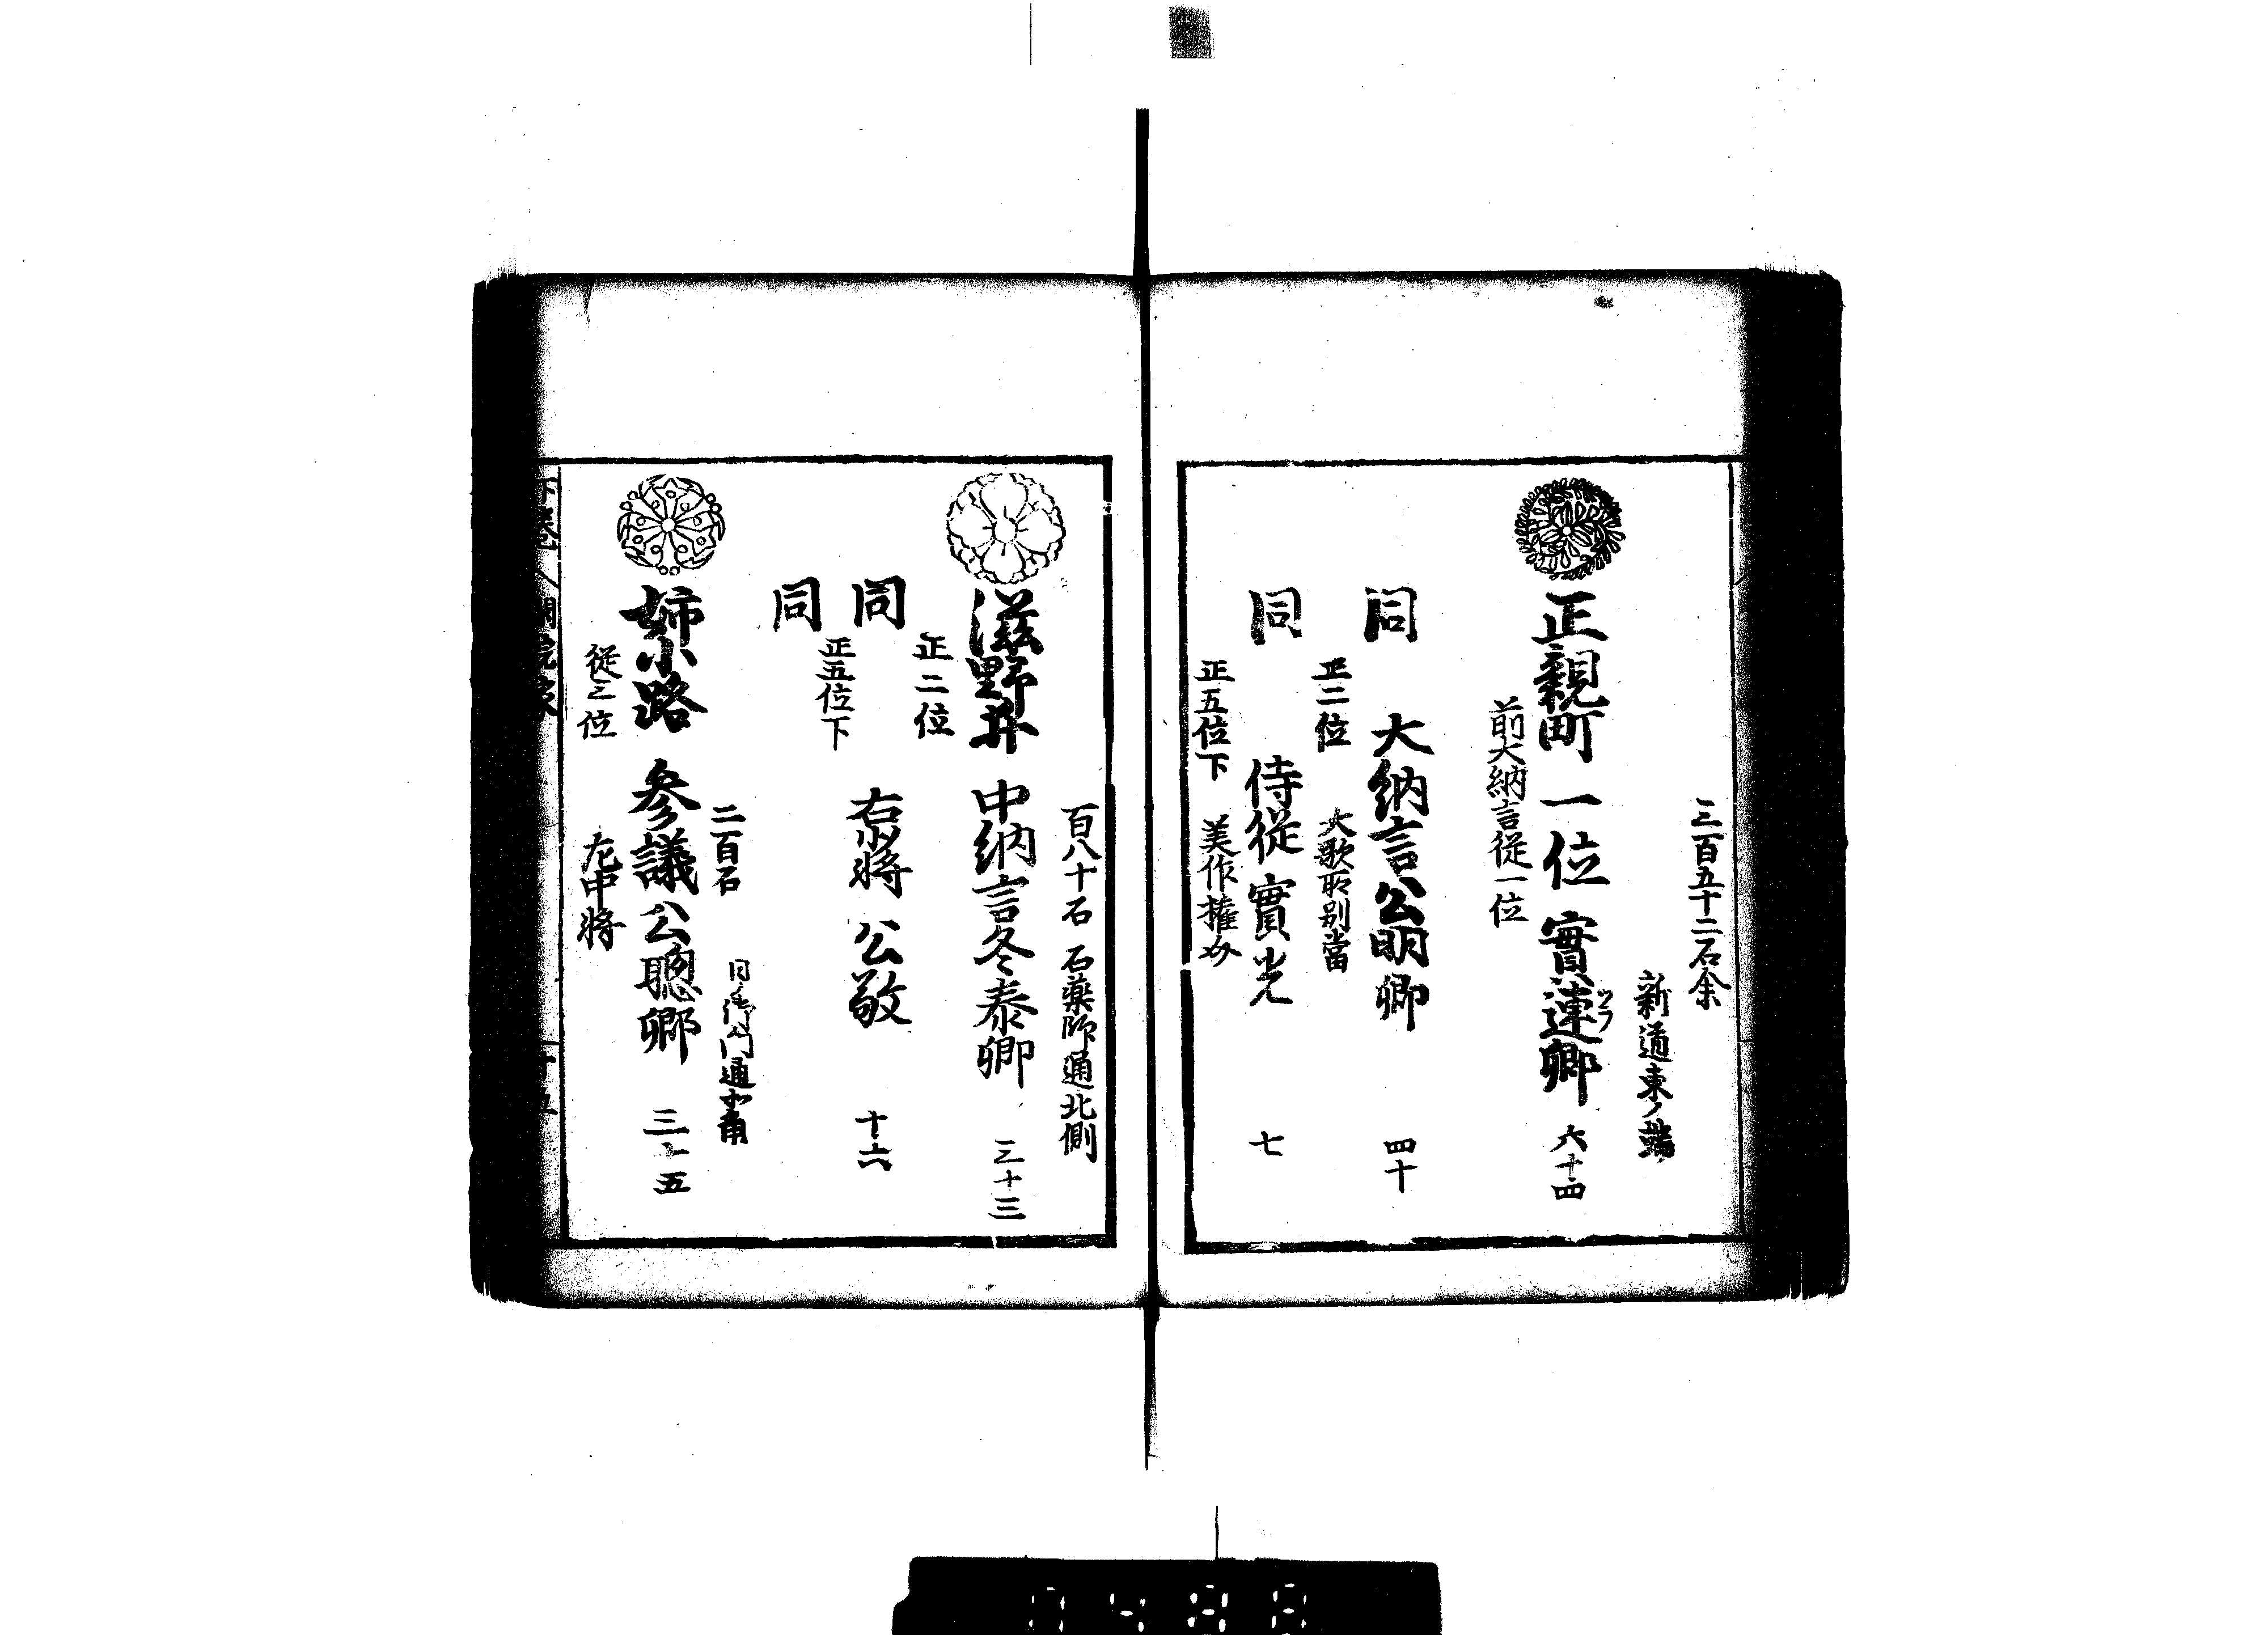 三百五十二石余
新道東ノ端
正親町 一位 實連卿 六十四
ツラ
前大納言従一位
同 大納言公明卿 四十
正二位 大歌所別當
同 侍従 實光 七
正五位下 美作権介
百八十石 石薬師通北側
滋野井 中納言冬泰卿 三十三
正二位
同 右少将 公敬 十六
正五位下
同
二百石
門通
姉小路 参議 公聰卿 三十五
従三位 左中将